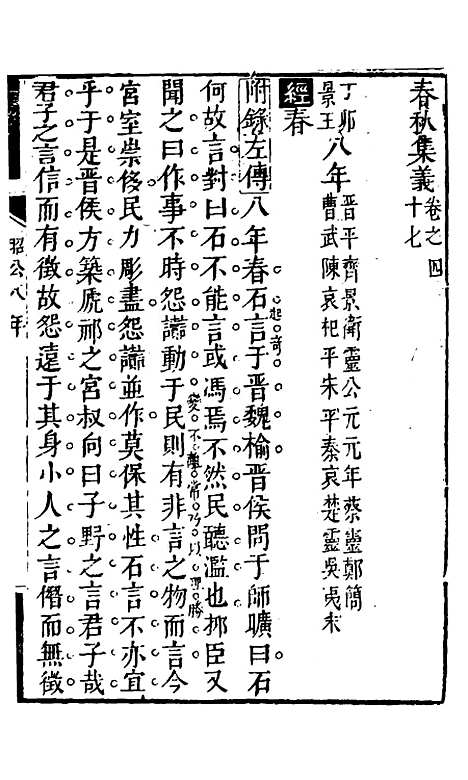 春秋集義卷之四十七
丁卯景王八年晉平齊景衛靈公元元年蔡靈鄭簡曹武陳哀杞平宋平秦哀楚靈吳夷末
經春
附錄左傳八年春石言于晉魏榆晉侯問于師曠曰石
起奇
何故言對曰石不能言或馮焉不然民聽濫也抑臣又
聞之曰作事不時怨讟動于民則有非言之物而言今
宮室崇侈民力彫盡怨讟並作莫保其性石言不亦宜
乎于是晉侯方築虒祁之宮叔向曰子野之言君子哉
君子之言信而有徵故怨遠于其身小人之言僭而無徵
昭公八年